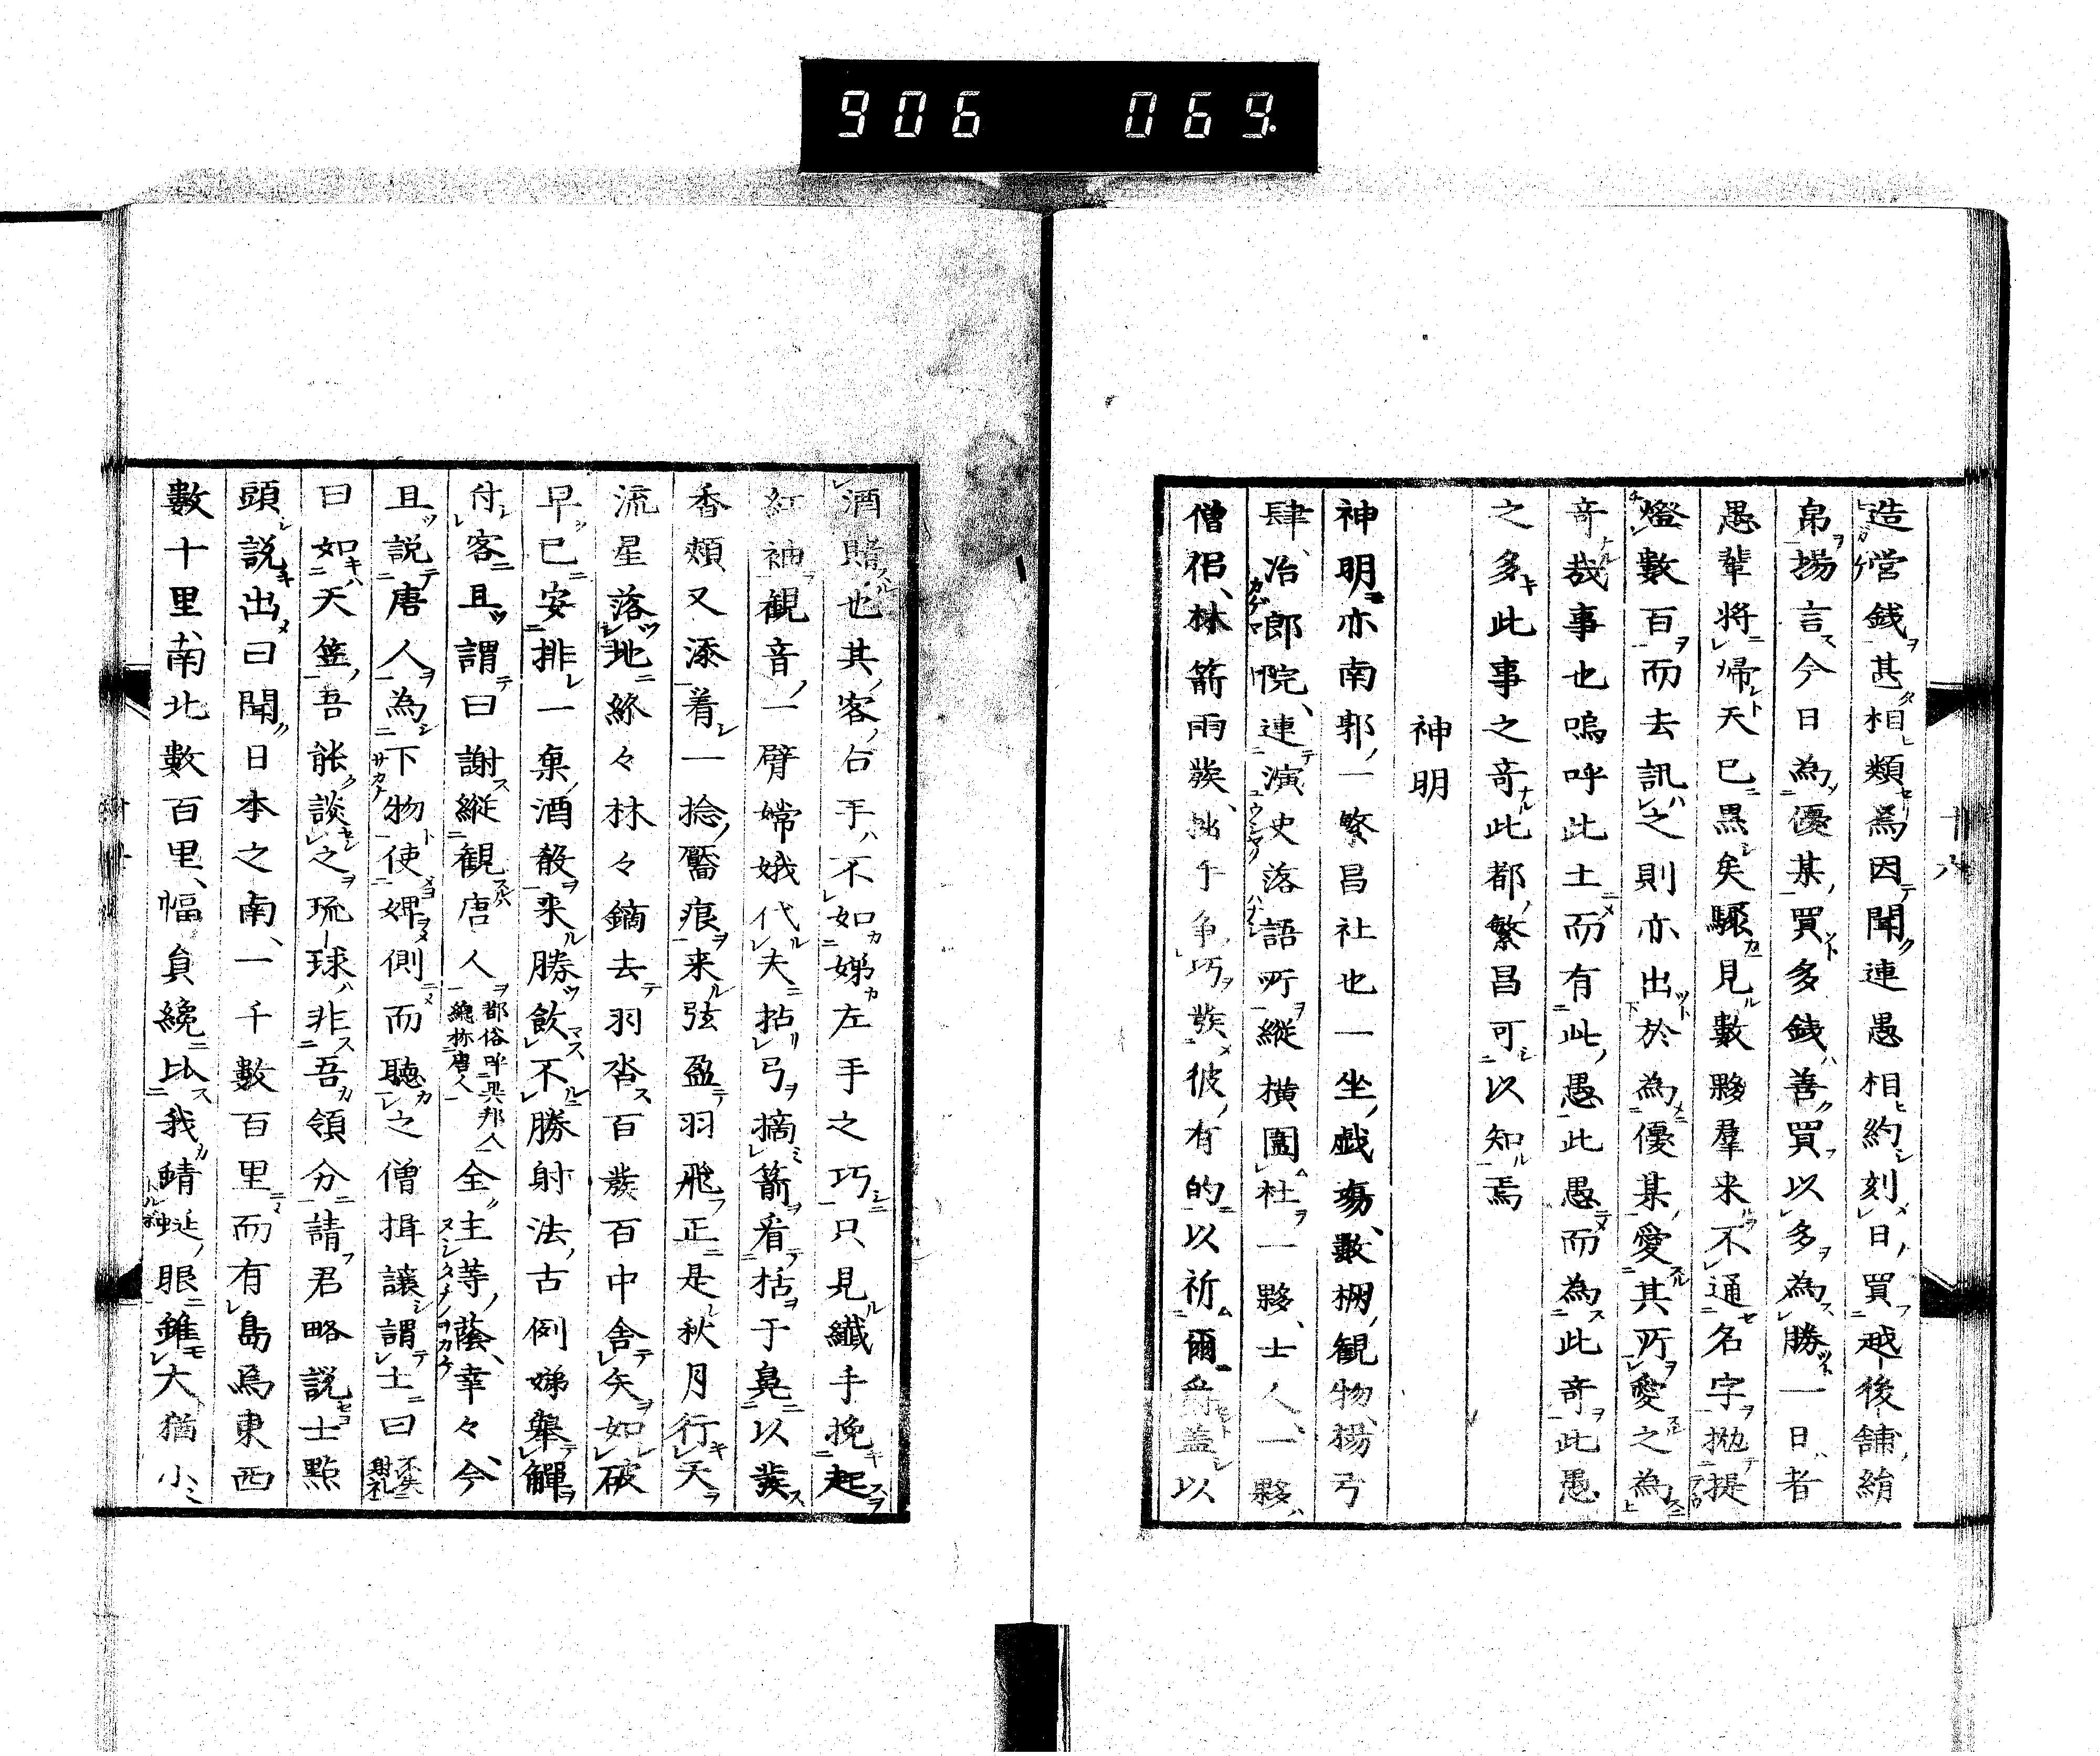 906 069.
造営銭甚相類焉因聞連愚相約刻日買越後舗絹
帛揚言今日為優某買多銭善買以多為勝一日者
愚輩将帰天已黒矣驟見數夥羣来不通名字抛提
燈數百而去訊之則亦出於為優某愛其所愛之為
奇哉事也嗚呼此土而有此愚此愚而為此奇此愚
之多此事之奇此都繁昌可以知焉
神明
神明亦南郭一繁昌社也一坐戯場數棚観物揚弓
肆冶郎院連演史落語所縦横圍社一夥士人一夥
僧侶林箭雨蔟拙手争巧蔟彼有的以祈爾爵盖以
酒賭也其客右手不如娣左手之巧只見纖手挽起
紅袖観音一臂嫦娥代夫拈弓摘箭看栝于鼻以蔟
香頬又添着一捻靨痕来弦盈羽飛正是秋月行天
流星落地綠々林々鏑去羽沓百蔟百中舎矢如破
早已安排一棄酒殽来勝飲不勝射法古例娣舉觶
付客且謂曰謝縦観唐人都俗呼異邦人総称唐人全主等蔭幸々今
且説唐人為下物使婢側而聽之僧揖讓謂士曰不失射礼
曰如天竺吾能談之琉球非吾領分請君略説士點
頭説出曰聞日本之南一千數百里而有島焉東西
數十里南北數百里幅員纔比我蜻蜒眼雖大猶小